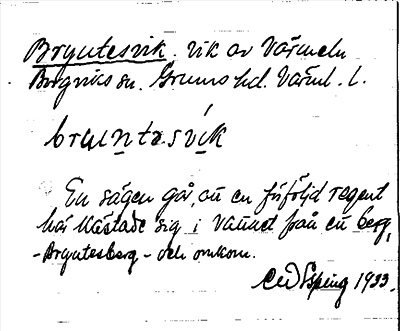 Bryntesvik. Vik av Värmeln
Borgviks sn. Grums hd. Värml. l.
bryntəsvik
En sägen går, att en förföljd regent
har kastade sig i vattnet från en berg,
-Bryntesberg - och omkom.
Esping 1933.